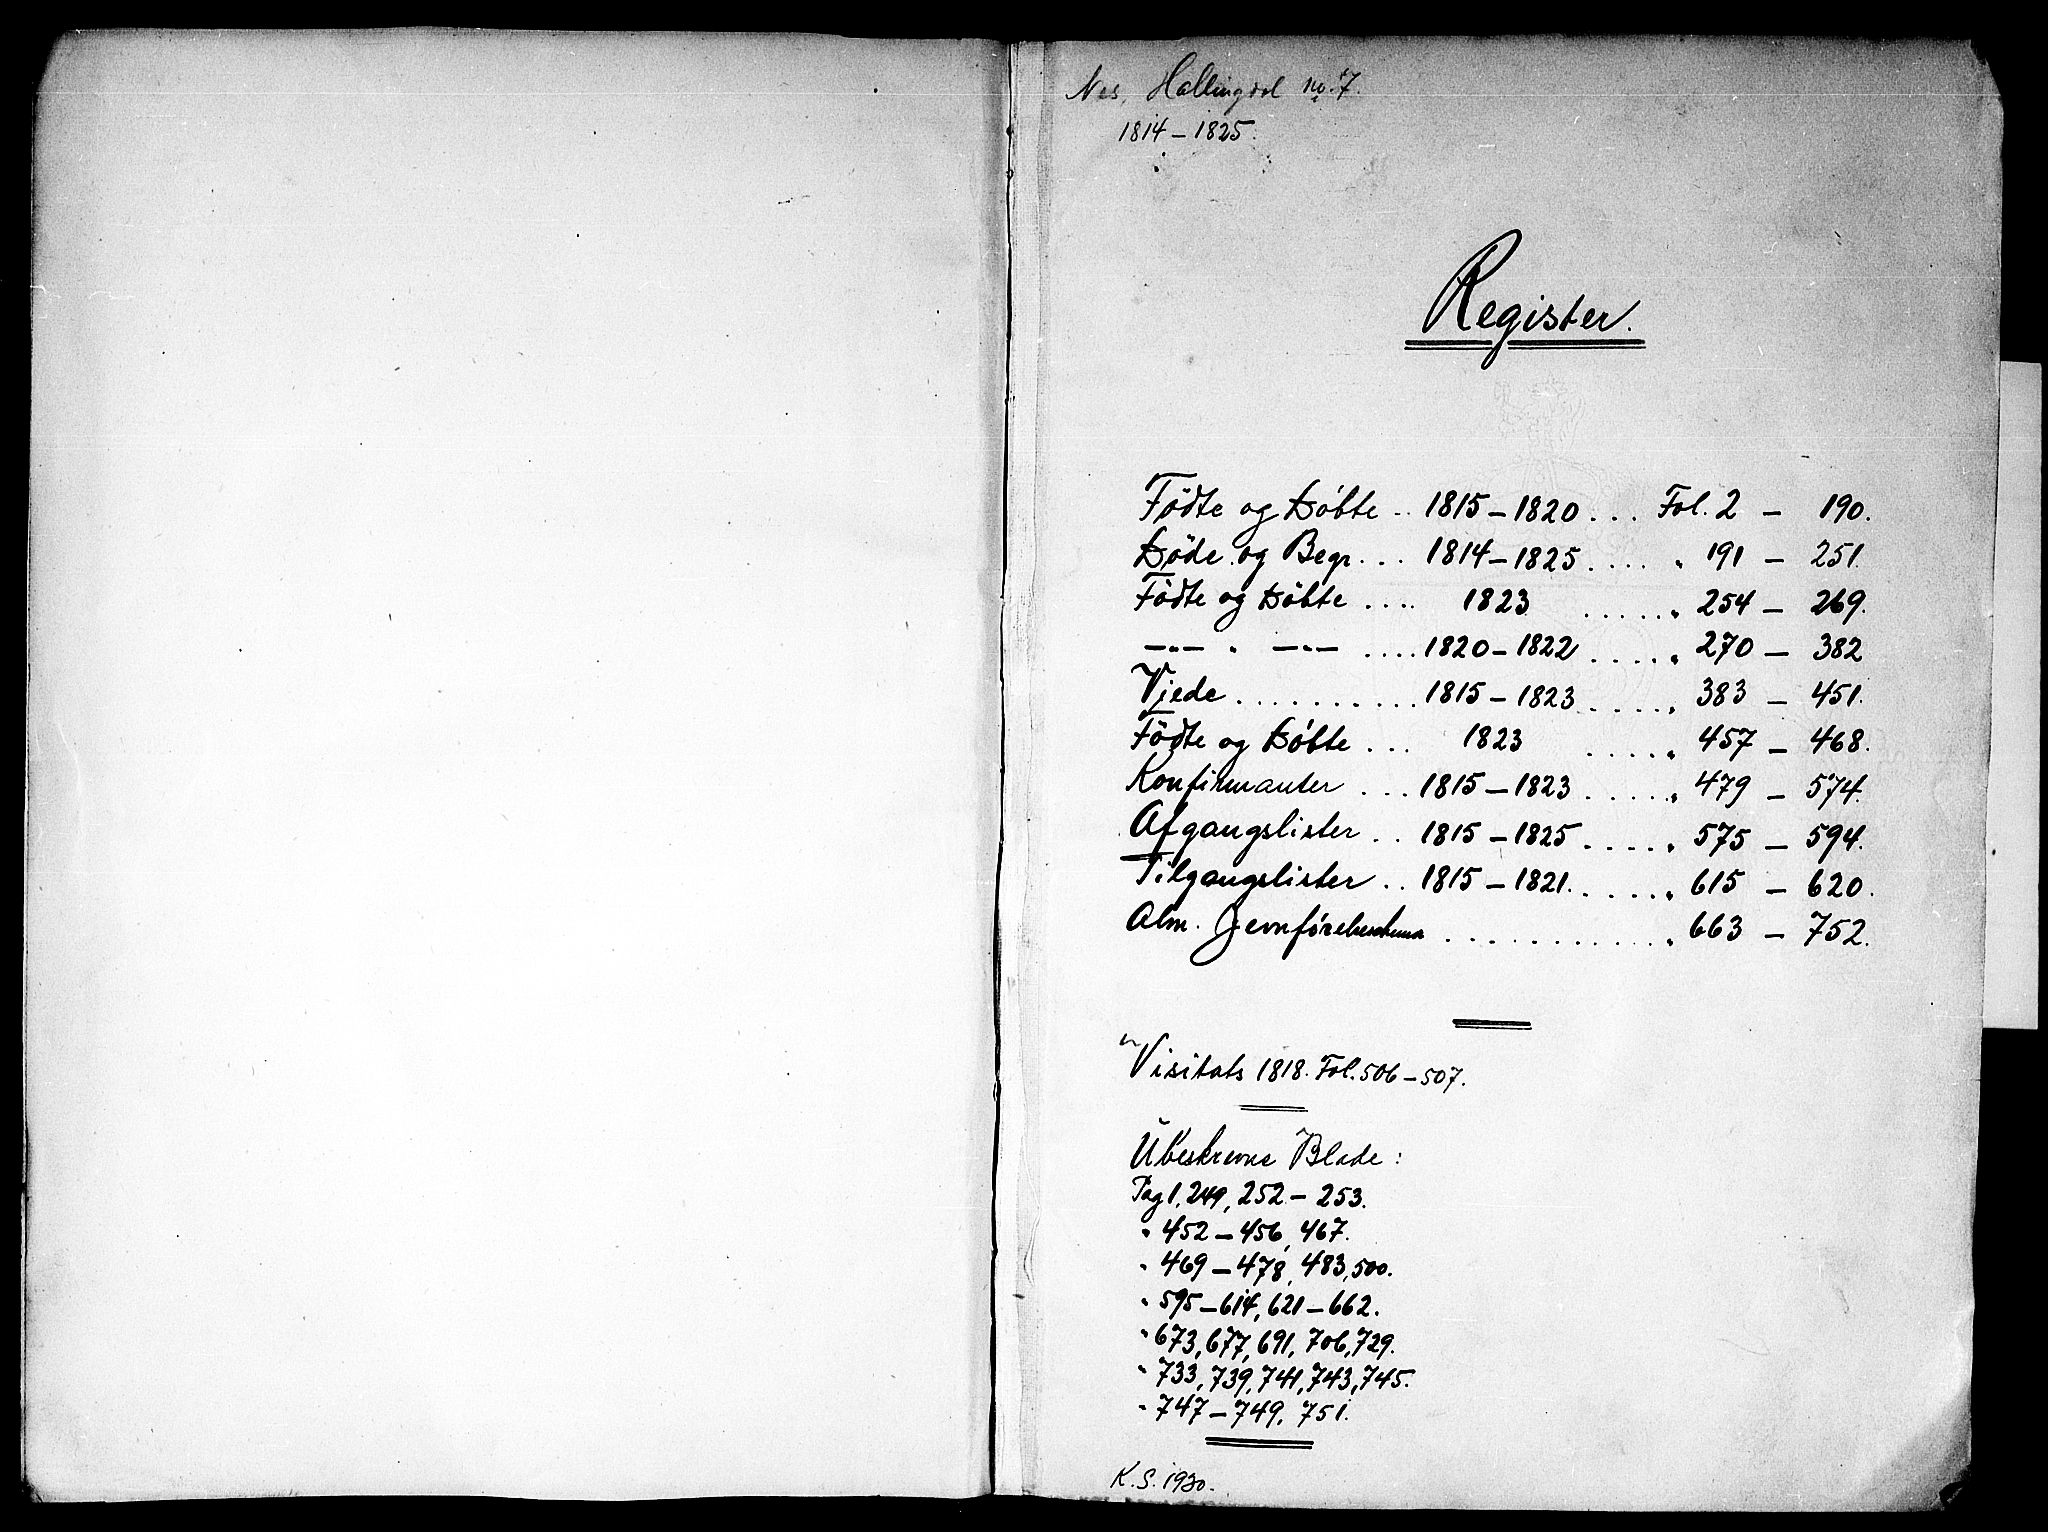 Nes, Hallingdal no. 7.
1814 – 1825.
Register.
Födte og Döbte .. 1815 – 1820 ... Fol. 2 – 190.
Döde og Begr. .. 1814 – 1825 .... " 191 – 251.
Födte og Döbte .... 1823 ..... " 254 – 269.
—"— " —"— .... 1820 – 1822 .... " 270 – 382
Viede .......... 1815 – 1823 .... " 383 – 451.
Födte og Döbte ... 1823 ..... " 457 – 468.
Konfirmanter ... 1815 – 1823 .... " 479 – 574.
Afgangslister .. 1815 – 1825 .... " 575 – 594.
Tilgangslister .. 1815 – 1821. .... " 615 – 620.
Alm. Jevnförelseschema ........... " 663 – 752.
Visitats 1818. Fol. 506 – 507.
Ubeskrevne Blade:
Pag 1, 249, 252 – 253.
" 452 – 456, 467.
" 469 – 478, 483, 500.
" 595 – 614, 621 – 662.
" 673, 677, 691, 706, 729.
" 733, 739, 741, 743, 745.
" 747 – 749, 751.
K. S. 1930.